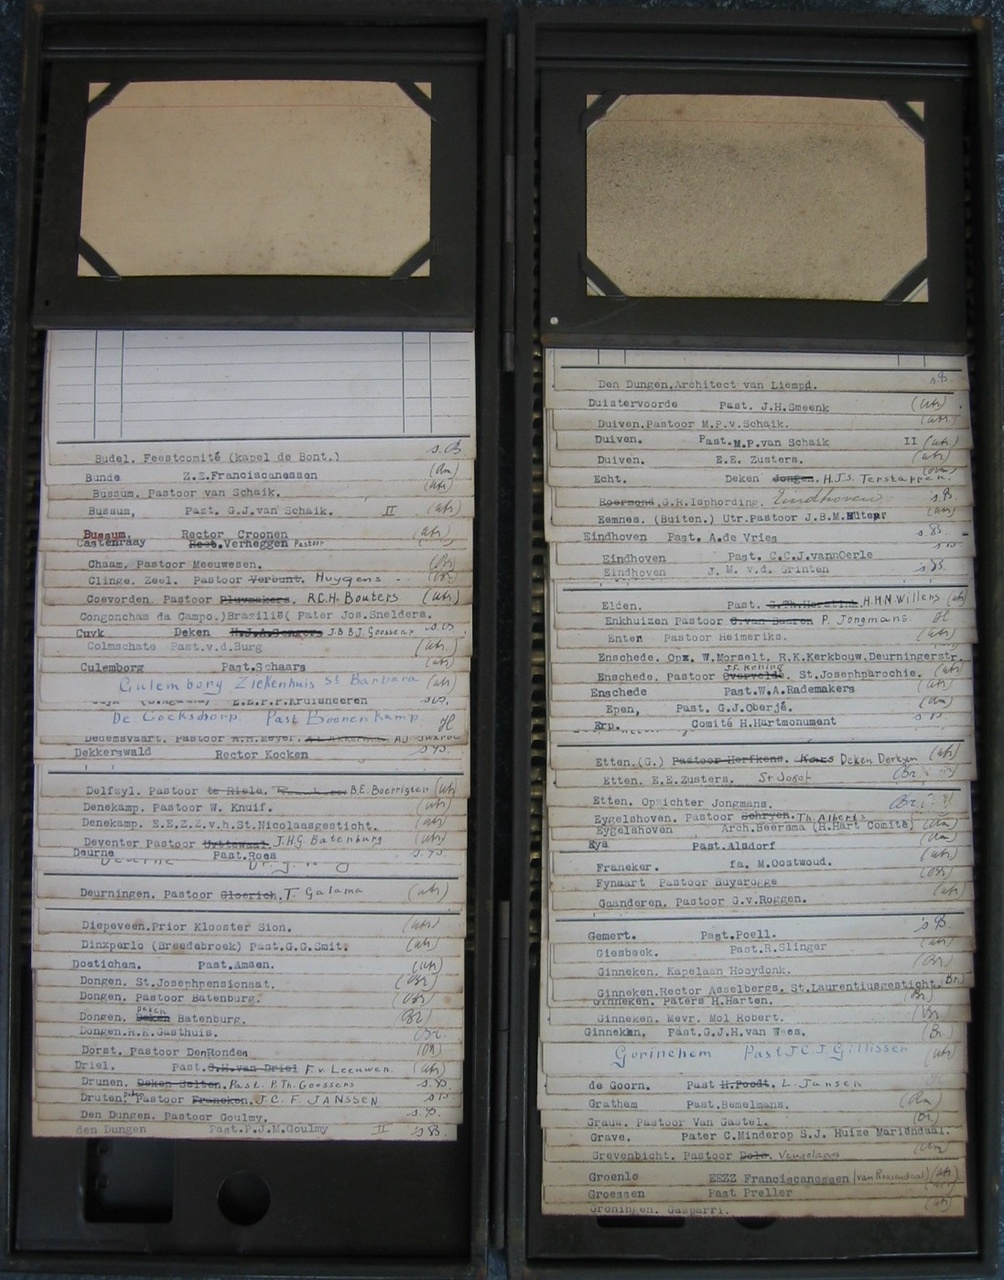 Budel. Feestcomité (kapel de Bont.) s.B.
Bunde Z.Z.Franciscanessen (Rm)
Bussum. Pastoor van Schaik. (utr)
Bussum, Past. G.J.van Schaik. II (utr)
Bussum. Rector Croonen (utr)
Castenraay Rect.Verheggen Pastoor
Chaam. Pastoor Meeuwesen. (Br)
Clinge. Zeel. Pastoor Verbunt. Huygens - (Br)
Coevorden. Pastoor Pluymakers. R.C.H. Bouters (utr)
Congonham do Campo.)Brazilië( Pater Jos.Snelders.
Cuyk Deken J.B.B.J. Goossens s.B.
Colmschate Past.v.d.Burg (utr)
Culemborg Past.Schaars (utr)
Culemborg Ziekenhuis St Barbara (utr)
E.E.P.P.Kruisheeren s.B.
De Cocksdorp. Past Boonenkamp. H
Dedemsvaart. Pastoor A.H.Meyer.
Dekkerswald Rector Kocken s.B.
Delfzyl. Pastoor te Riele. B.E. Boerrigter (utr)
Denekamp. Pastoor W. Knuif. (utr)
Denekamp. E.E.Z.Z.v.h.St.Nicolaasgesticht. (utr)
Deventer Pastoor J.H.G. Batenburg (utr)
Deurne Past.Roes s.B.
Deurne
Deurningen. Pastoor Gloerich. T. Galama (utr)
Diepeveen.Prior Klooster Sion. (utr)
Dinxperlo (Breedebroek) Past.G.G.Smit. (utr)
Dostichem. Past.Amsen. (utr)
Dongen. St.Josephpensionaat. (Br)
Dongen. Pastoor Batenburg. (Br)
Dongen. Deken Batenburg. (Br)
Dongen.R.K.Gasthuis. Br.
Dorst. Pastoor DenRonden (Br)
Driel. Past.G.H.van Driel F.v. Leeuwen. (utr)
Drunen. Deken Selten. Past. P.Th. Goossens s.B.
Druten. Pastoor Francken. J.C.F. JANSSEN s.B.
Den Dungen. Pastoor Goulmy. s.B.
den Dungen Past.P.J.M.Goulmy II s.B.
Den Dungen.Architect van Liempd. s.B.
Duistervoorde Past. J.H.Smeenk (utr)
Duiven.Pastoor M.P.v.Schaik. (utr)
Duiven. Past.M.P.van Schaik II (utr)
Duiven. E.E. Zusters. (utr)
Echt. Deken Jongen. H.J.S. Terstappen. (Rm)
Roermond.G.R.Isphording. Eindhoven s.B.
Eemnes. (Buiten.) Utr.Pastoor J.B.M. (utr)
Eindhoven Past. A.de Vries s.B.
Eindhoven Past. C.C.J.vannOerle
Eindhoven J. M. v.d. Grinten s.B.
Elden. Past. H.H.N. Willens (utr)
Enkhuizen Pastoor G.van Baaren P. Jongmans H
Enten Pastoor Heimeriks. (utr)
Enschede. Opz. W.Morselt. R.K.Kerkbouw.Deurningerstr.
Enschede. Pastoor J.F. Koning St.Josephparochie. (utr)
Enschede Past.W.A.Rademakers (utr)
Epen, Past. G.J.Oberjé. (Rm)
Erp. Comité H.Hartmonument s.B.
Etten.(G.) Pastoor Herfkens. Deken Derksen (utr)
Etten. E.E.Zusters. St Josef (Br)
Etten. Opzichter Jongmans. (Br)
Eygelshoven. Pastoor Schryen. Th. Alberts
Eygelshoven Arch.Beersma (H.Hart Comité) (Rm)
Eys Past.Alsdorf (Rm)
Franeker. fa. M.Oostwoud. (utr)
Fynaart Pastoor Buysrogge (Br)
Gaanderen. Pastoor G.v.Roggen. (utr)
Gemert. Past.Poell. s.B.
Giesbeek. Past.R.Slinger (utr)
Ginneken. Kapelaan Hooydonk. (Br)
Ginneken.Rector Asselbergs. St.Laurentiusgesticht. Br.
Ginneken. Paters H.Harten. (Br)
Ginneken. Mevr. Mol Robert. (Br)
Ginneken, Past.G.J.H.van Wees. (Br.
Gorinchem Past J.C.J. Gillissen (utr)
de Goorn. Past H.Poodt. L. Jansen
Grathem Past.Bemelmans. (Rm)
Grauw. Pastoor Van Gastel. (Br)
Grave. Pater C.Minderop S.J. Huize Mariëndaal.
Grevenbicht. Pastoor Dols. Vangelaars (Rm)
Groenlo EEZZ Franciscanessen (van Roosendaal) (utr)
Groessen Past Preller
Groningen. Gasparri. (utr)